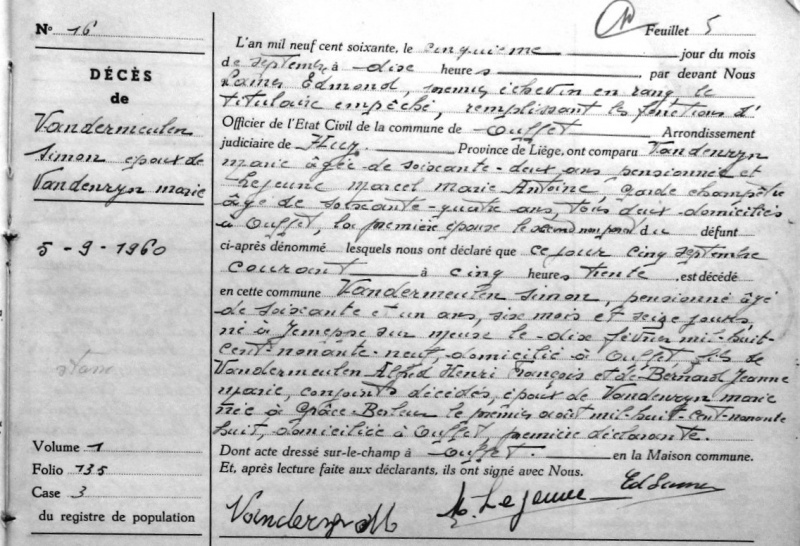 N° 16
DÉCÈS
de
Vandermeulen
Simon époux de
Vandenryn marie
5 - 9 - 1960
Volume 1
Folio 135
Case 3
du registre de population
Feuillet 5
L'an mil neuf cent soixante, le cinquième jour du mois
de septembre à dix heures, par devant Nous
Edmond, échevin en rang le
titulaire empêché, remplissant les fonctions d'
Officier de l'Etat Civil de la commune de Ouffet Arrondissement
judiciaire de Huy. Province de Liège, ont comparu Vandenryn
marie âgée de soixante-deux ans pensionnée et
Lejeune Marcel Marie Antoine, Garde champêtre
âgé de soixante-quatre ans, tous deux domiciliés
à Ouffet, la première épouse le second non parent du défunt
ci-après dénommé lesquels nous ont déclaré que ce jour cinq septembre
courant à cinq heures trente, est décédé
en cette commune Vandermeulen Simon, pensionné âgé
de soixante et un ans, six mois et seize jours,
né à Jemeppe sur meuse le dix février mil-huit-
cent-nonante-neuf, domicilié à Ouffet, fils de
Vandermeulen Alfred Henri François et de Bernard Jeanne
marie, conjoints décédés, époux de Vandenryn marie
née à Grâce-Berleur le premier août mil-huit-cent-nonante
huit, domiciliée à Ouffet première déclarante.
Dont acte dressé sur-le-champ à Ouffet. en la Maison commune.
Et, après lecture faite aux déclarants, ils ont signé avec Nous.
Vandenryn M Lejeune Ed